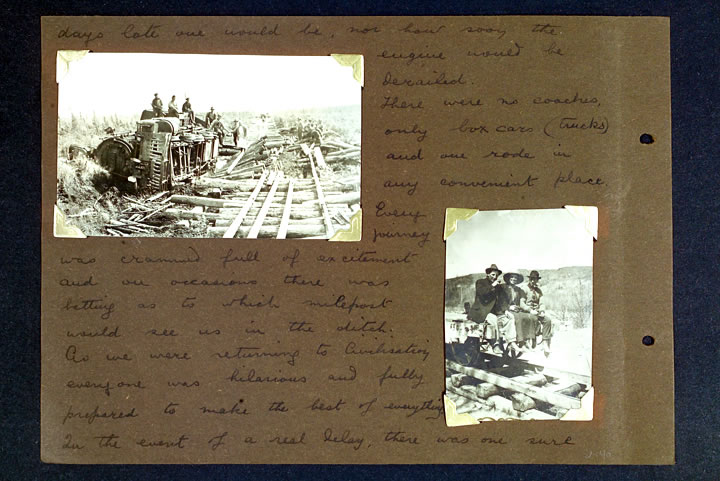 days late one would be, nor how soon the
engine would be
derailed.
There were no coaches,
only box cars (trucks)
and one rode in
any convenient place.
Every
journey
was crammed full of excitement
and on occasions there was
betting as to which milepost
would see us in the ditch.
As we were returning to Civilisation
everyone was hilarious and fully
prepared to make the best of everything
In the event of a real delay, there was one sure